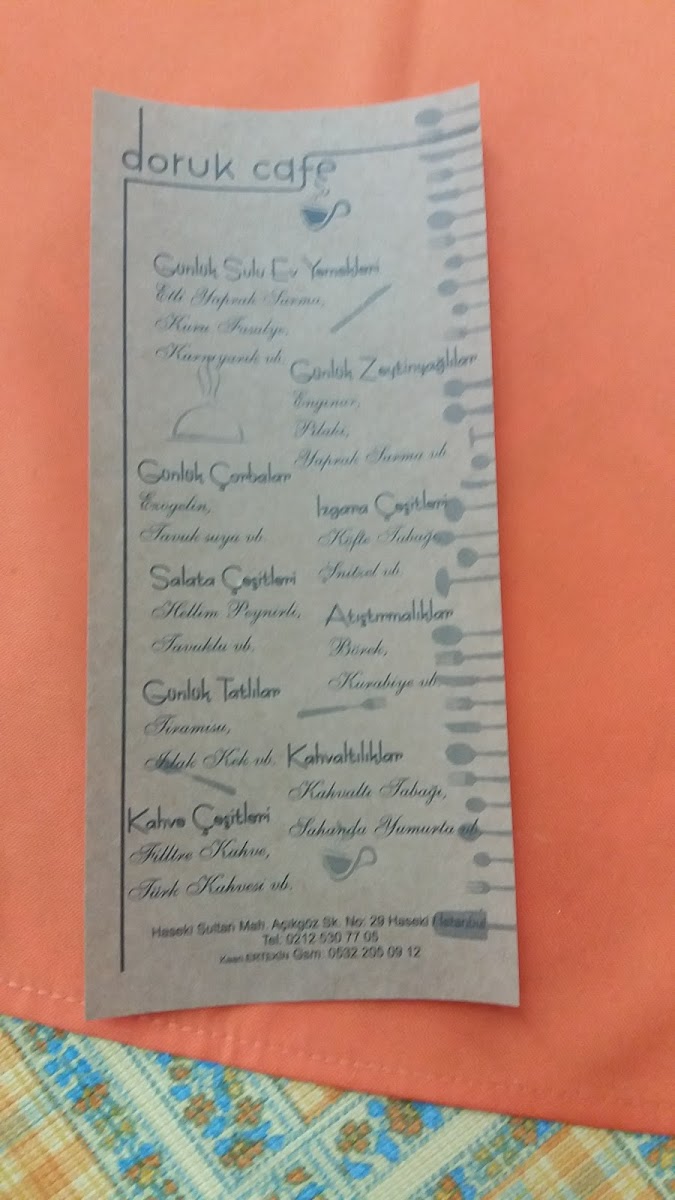 doruk cafe
Günlük Sulu Ev Yemekleri
Etli Yaprak Sarma,
Kuru Fasulye,
Karnıyarık vb.
Günlük Zeytinyağlılar
Enginar,
Pilaki,
Yaprak Sarma vb.
Günlük Çorbalar
Ezogelin,
Tavuk suyu vb.
Izgara Çeşitleri
Köfte Tabağı,
Şnitzel vb.
Salata Çeşitleri
Hellim Peynirli,
Tavuklu vb.
Atıştırmalıklar
Börek,
Kurabiye vb.
Günlük Tatlılar
Tiramisu,
Islak Kek vb.
Kahvaltılıklar
Kahvaltı Tabağı,
Sahanda Yumurta vb.
Kahve Çeşitleri
Filtre Kahve,
Türk Kahvesi vb.
Haseki Sultan Mah. Açıkgöz Sk. No: 29 Haseki / İstanbul
Tel: 0212 530 77 05
Kaan ERTEKİN Gsm: 0532 205 09 12